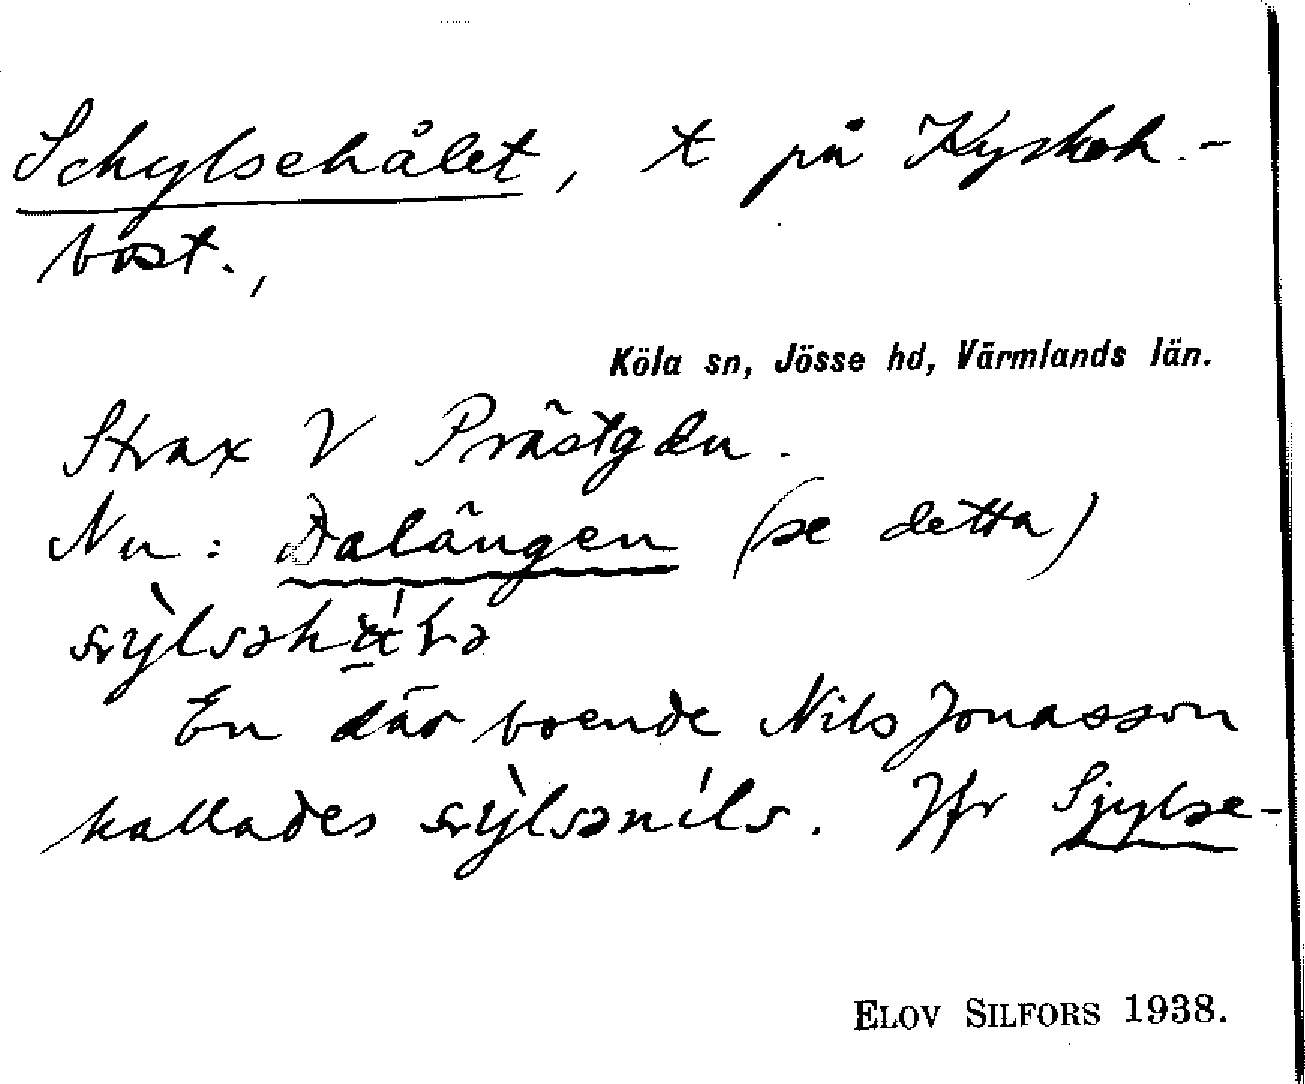 Schylsehålet, t på Kyrkoh.-
bost.,
Köla sn, Jösse hd, Värmlands län.
Strax V Prästgdn.
Nu: Dalängen (se detta)
En där boende Nils Jonasson
kallades. Jfr Sjylse-
ELOV SILFORS 1938.